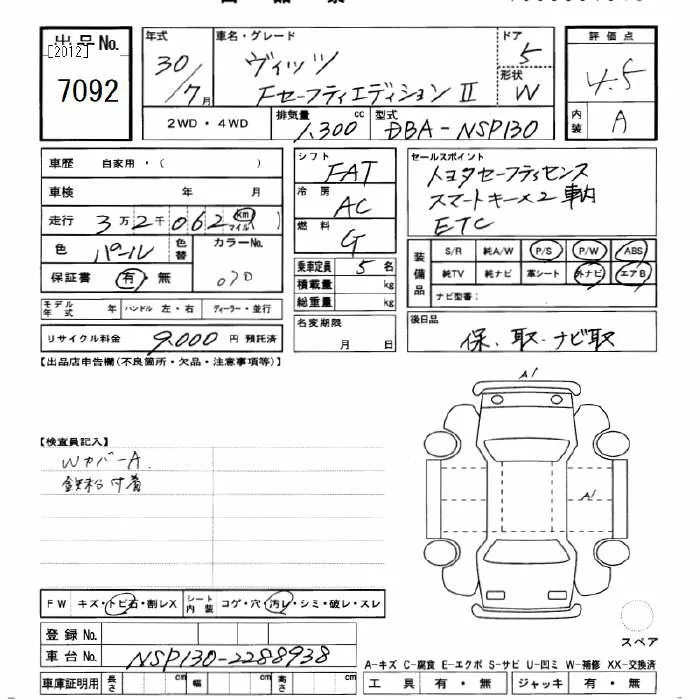 出品No.
[2012]
7092
年式
30/7月
車名・グレード
ヴィッツ
Fセーフティエディション Ⅱ
ドア
5
形状
W
評価点
4.5
内装
A
2WD・4WD
排気量
1,300 cc
型式
DBA-NSP130
車歴 自家用・( )
車検 年 月
走行 3万2千062 km マイル( )
色 パール 色替 カラーNo. 070
保証書 有・無
モデル年式 年 ハンドル 左・右 ディーラー・並行
リサイクル料金 9,000 円 預託済
シフト FAT
冷房 AC
燃料 G
乗車定員 5名
積載量 kg
総重量 kg
名変期限
月 日
セールスポイント
トヨタセーフティセンス
スマートキー×2 車内
ETC
装備品
S/R 純A/W P/S P/W ABS
純TV 純ナビ 革シート 外ナビ エアB
ナビ型番:
後日品
保、取、ナビ取
【出品店申告欄(不良箇所・欠品・注意事項等)】
【検査員記入】
Wカバー A
鉄粉付着
A1
A1
FW キズ・トビ石・割レX シート内装 コゲ・穴・汚レ・シミ・破レ・スレ
登録No.
車台No. NSP130-2288938
車庫証明用 長さ cm 幅 cm 高さ cm
スペア
A-キズ C-腐食 E-エクボ S-サビ U-凹ミ W-補修 XX-交換済
工具 有・無 ジャッキ 有・無